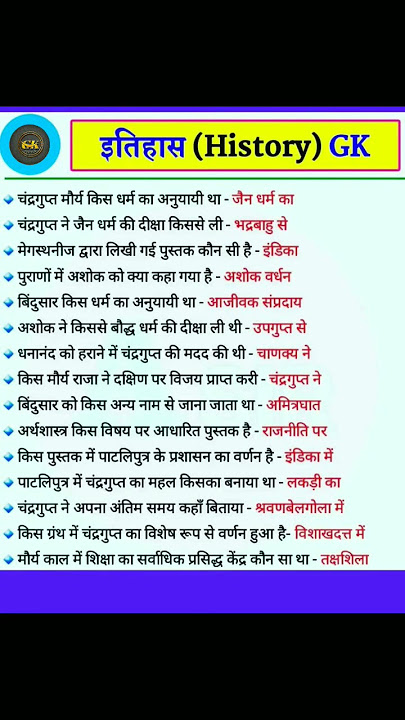 GK
इतिहास (History) GK
चंद्रगुप्त मौर्य किस धर्म का अनुयायी था - जैन धर्म का
चंद्रगुप्त ने जैन धर्म की दीक्षा किससे ली - भद्रबाहु से
मेगस्थनीज द्वारा लिखी गई पुस्तक कौन सी है - इंडिका
पुराणों में अशोक को क्या कहा गया है - अशोक वर्धन
बिंदुसार किस धर्म का अनुयायी था - आजीवक संप्रदाय
अशोक ने किससे बौद्ध धर्म की दीक्षा ली थी - उपगुप्त से
धनानंद को हराने में चंद्रगुप्त की मदद की थी - चाणक्य ने
किस मौर्य राजा ने दक्षिण पर विजय प्राप्त करी - चंद्रगुप्त ने
बिंदुसार को किस अन्य नाम से जाना जाता था - अमित्रघात
अर्थशास्त्र किस विषय पर आधारित पुस्तक है - राजनीति पर
किस पुस्तक में पाटलिपुत्र के प्रशासन का वर्णन है - इंडिका में
पाटलिपुत्र में चंद्रगुप्त का महल किसका बनाया था - लकड़ी का
चंद्रगुप्त ने अपना अंतिम समय कहाँ बिताया - श्रवणबेलगोला में
किस ग्रंथ में चंद्रगुप्त का विशेष रूप से वर्णन हुआ है- विशाखदत्त में
मौर्य काल में शिक्षा का सर्वाधिक प्रसिद्ध केंद्र कौन सा था - तक्षशिला